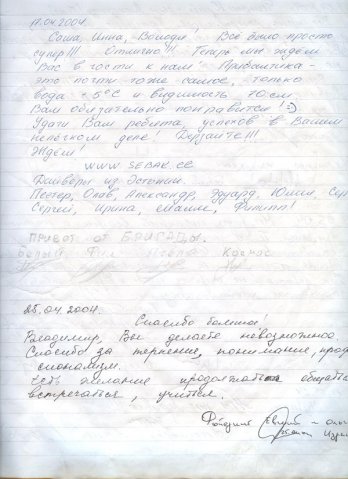 17.04.2004.
Саша, Инна, Володя! Все было просто
супер!!! Отлично!!! Теперь мы ждем
Вас в гости к нам. Прибалтика -
это почти тоже самое, только
вода +5°C и видимость 70 см.
Вам обязательно понравится! :)
Удачи Вам ребята, успехов в Вашем
нелегком деле! Дерзайте!!!
Ждём!
WWW.SEBAK.EE
Дайверы из Эстонии.
Пеетер, Олав, Александр, Эдуард, Юлии,
Сергей, Ирина, Филипп!
ПРИВЕТ от БРИГАДЫ.
белый
Космос
25.04.2004.
Спасибо большое!
Владимир, Вы делаете невозможное.
Спасибо за терпение, понимание,
сионализм.
Есть желание продолжать общаться
встречаться, учиться.
Евгений и